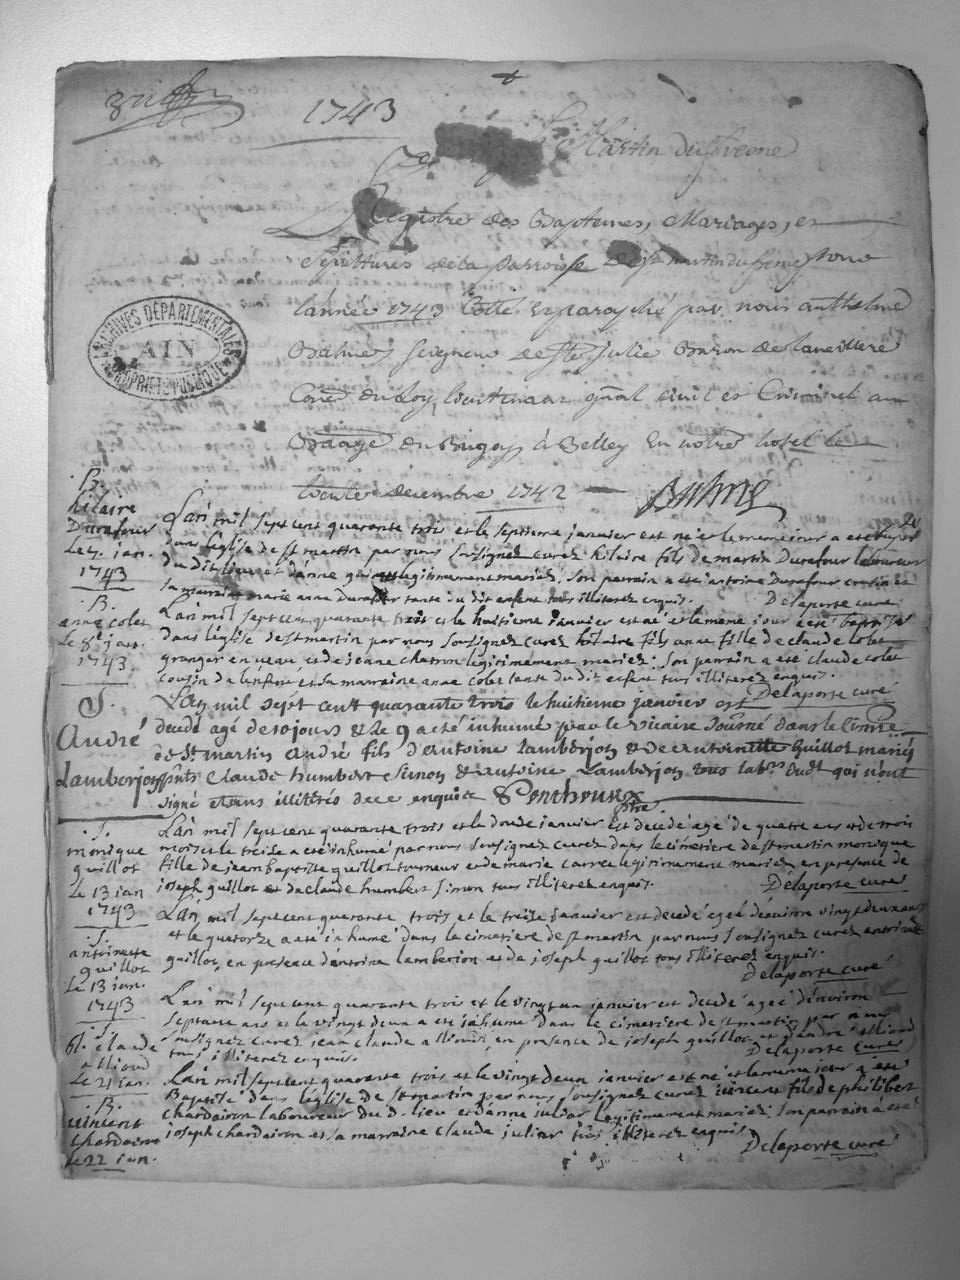 1743
St Martin du fresne
Registre des Baptemes, Mariages, et
Sepultures de la Parroisse de St martin du frene pour
l'année 1743 Cotté et paraphé par nous anthelme
Balme, Seigneur de Ste julie Baron de
Coner du Roy, lieutenant gnal civil et Criminel au
Baage du Bugey à Belley En notre hotel le
trente decembre 1742
ARCHIVES DÉPARTEMENTALES
AIN
PROPRIÉTÉ PUBLIQUE
B.
hilaire
Durafour
Le 7 jan.
1743
Lan mil sept cent quarante trois et le septieme janvier est né et le meme jour a eté
dans l'eglise de st martin par nous soussignez curez hilaire fils de martin Durafour laboureur
du dit lieu et d'anne legitimement mariez, son parrain a eté antoine Durafour
la marraine marie anne Durafour tante du dit enfant tous illiterez enquis. Delaporte curé
B.
anne colet
Le 8e jan.
1743
Lan mil sept cent quarante trois et le huitieme janvier est né et le meme jour a eté baptisé
dans l'eglise de st martin par nous soussignez curez hilaire fils anne fille de claude colet
granger en veau et de jeanne chatron legitimement mariez. son parrain a eté claude colet
cousin de l'enfant et sa marraine anne colet tante du dit enfant tous illiterez enquis.
Delaporte curé
S.
André
Lamberjon
L'an mil sept cent quarante trois le huitieme janvier est
decedé agé de 10 jours & le 9 a eté inhumé par le vicaire soussigné dans le cimetiere
de st martin André fils d'Antoine Lamberjon & de Antoinette Guillot mariés
pnts Claude humbert Simon & Antoine Lamberjon tous labrs dudt qui n'ont
signé etans illitérés de ce enquis Ponthoux
ptre
S.
monique
guillot
Le 13 jan
1743
Lan mil sept cent quarante trois et le douze janvier Est decedé agé de quatre ans et de mois
mois et le treize a eté inhumé par nous soussignez curez dans le cimetiere de st martin monique
fille de jean baptiste guillot tourneur et de marie carre legitimement mariez, en presence de
joseph guillot et de claude humbert simon tous illiterez enquis. Delaporte curé
S.
antoinette
guillot
Le 13 jan.
1743
L'an mil sept cent quarante trois et le treize janvier est decedé ageé d'environ vingt deux ans
et le quatorze a eté inhumé dans le cimetiere de st martin par nous soussignez curez antoinette
guillot, en presence d'antoine lamberjon et de joseph guillot tous illiterez enquis.
Delaporte curé
S. claude
alliond
Le 21 jan.
Lan mil sept cent quarante trois et le vingt un janvier est decedé ageé d'environ
septante ans et le vingt deux a eté inhumé dans le cimetiere de st martin par nous
soussignez curez jean claude alliond, en presence de joseph guillot, et d'andré alliond
tous illiterez enquis. Delaporte curé
B.
vincent
chardairon
Le 22 jan.
Lan mil sept cent quarante trois et le vingt deux janvier est né et le meme jour a eté
Baptisé dans l'eglise de st martin par nous soussignez curez vincent fils de philibert
chardairon laboureur du d. lieu et d'anne juliar legitimement mariez. son parrain a eté
joseph chardairon et sa marraine claude juliar tous illiterez enquis.
Delaporte curé